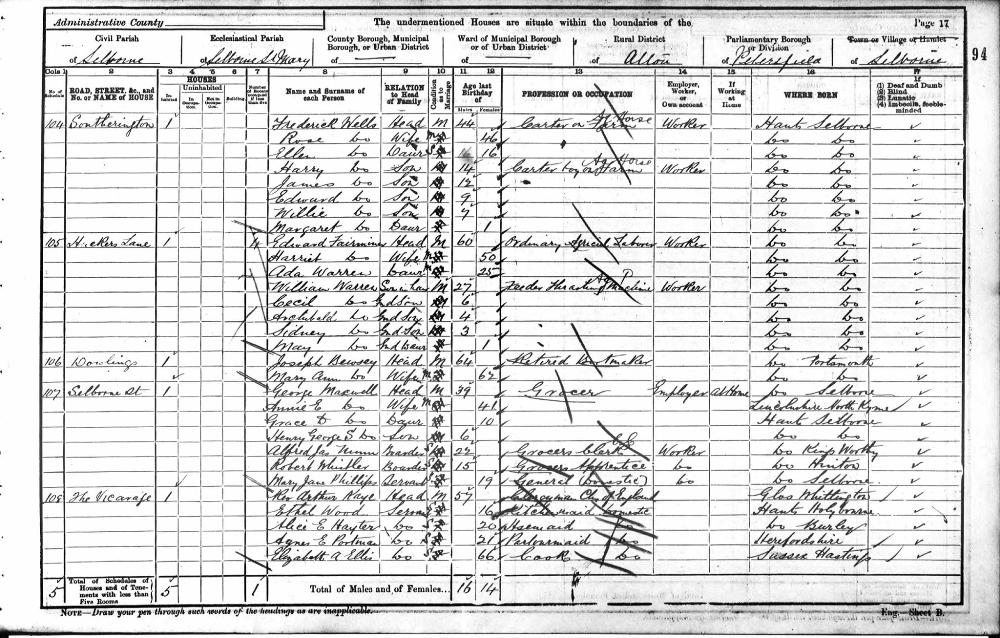 Administrative County
The undermentioned Houses are situate within the boundaries of the
Page 17
94
Civil Parish
of Selborne
Ecclesiastical Parish
of Selborne St Mary
County Borough, Municipal Borough, or Urban District
of
Ward of Municipal Borough or of Urban District
of
Rural District
of Alton
Parliamentary Borough or Division
of Petersfield
Town or Village or Hamlet
of Selborne
Cols 1 2 3 4 5 6 7 8 9 10 11 12 13 14 15 16 17
No. of Schedule
ROAD, STREET, &c., and No. or NAME of HOUSE
HOUSES
Inhabited
Uninhabited
In Occupation
Not in Occupation
Building
Name and Surname of each Person
RELATION to Head of Family
Condition as to Marriage
Age last Birthday of
Males Females
PROFESSION OR OCCUPATION
Employer, Worker, or Own account
If Working at Home
WHERE BORN
(1) Deaf and Dumb
(2) Blind
(3) Lunatic
(4) Imbecile, feeble-minded
104 Southerington 1 Frederick Wells Head M 44 Carter on Farm Worker Hants Selborne
Rose Do Wife 46 Do Do
Ellen Do Daur S 16 Do Do
Harry Do Son 14 Carter boy on Farm Worker Do Do
James Do Son 12 Do Do
Edward Do Son 9 Do Do
Willie Do Son 7 Do Do
Margaret Do Daur 1 Do Do
105 Huckers Lane 1 4 Edward Fairminer Head M 60 Ordinary Agricul Labourer Worker Do Do
Harriet Do Wife 50 Do Do
Ada Warren Daur 25 Do Do
William Warren Son in Law M 27 Feeder Thrashing Machine Worker Do Do
Cecil Do Gnd Son 6 Do Do
Archibald Do Gnd Son 4 Do Do
Sidney Do Gnd Son 3 Do Do
May Do Gnd Daur 1 Do Do
106 Dowlings 1 Joseph Dewsey Head M 64 Retired Bootmaker Do Portsmouth
Mary Ann Do Wife 62 Do Do
107 Selborne St 1 George Maxwell Head M 39 Grocer Employer At Home Do Selborne
Annie E Do Wife 41 Lincolnshire North Kyme
Grace D Do Daur 10 Hants Selborne
Henry George S Do Son 6 Do Do
Alfred Jas Boarder S 22 Grocers Clerk Worker Do Kings Worthy
Robert Whistler Boarder S 15 Grocers Apprentice Do Do Hinton
Mary Jane Phillips Servant S 19 General (Domestic) Do Do Selborne
108 The Vicarage 1 Rev Arthur Kaye Head M 57 Clergyman Ch of England Glos Whittington
Ethel Wood Servant 16 Kitchenmaid Domestic Hants Holybourne
Alice E Hayter Do S 20 Hsemaid Do Do Burley
Agnes E Portman Do S 21 Parlourmaid Do Herefordshire
Elizabeth A Ellis Do S 66 Cook Do Sussex Hastings
5 Total of Schedules of Houses and of Tenements with less than Five Rooms 5 1 Total of Males and of Females... 16 14
NOTE—Draw your pen through such words of the headings as are inapplicable.
Eng.—Sheet B.